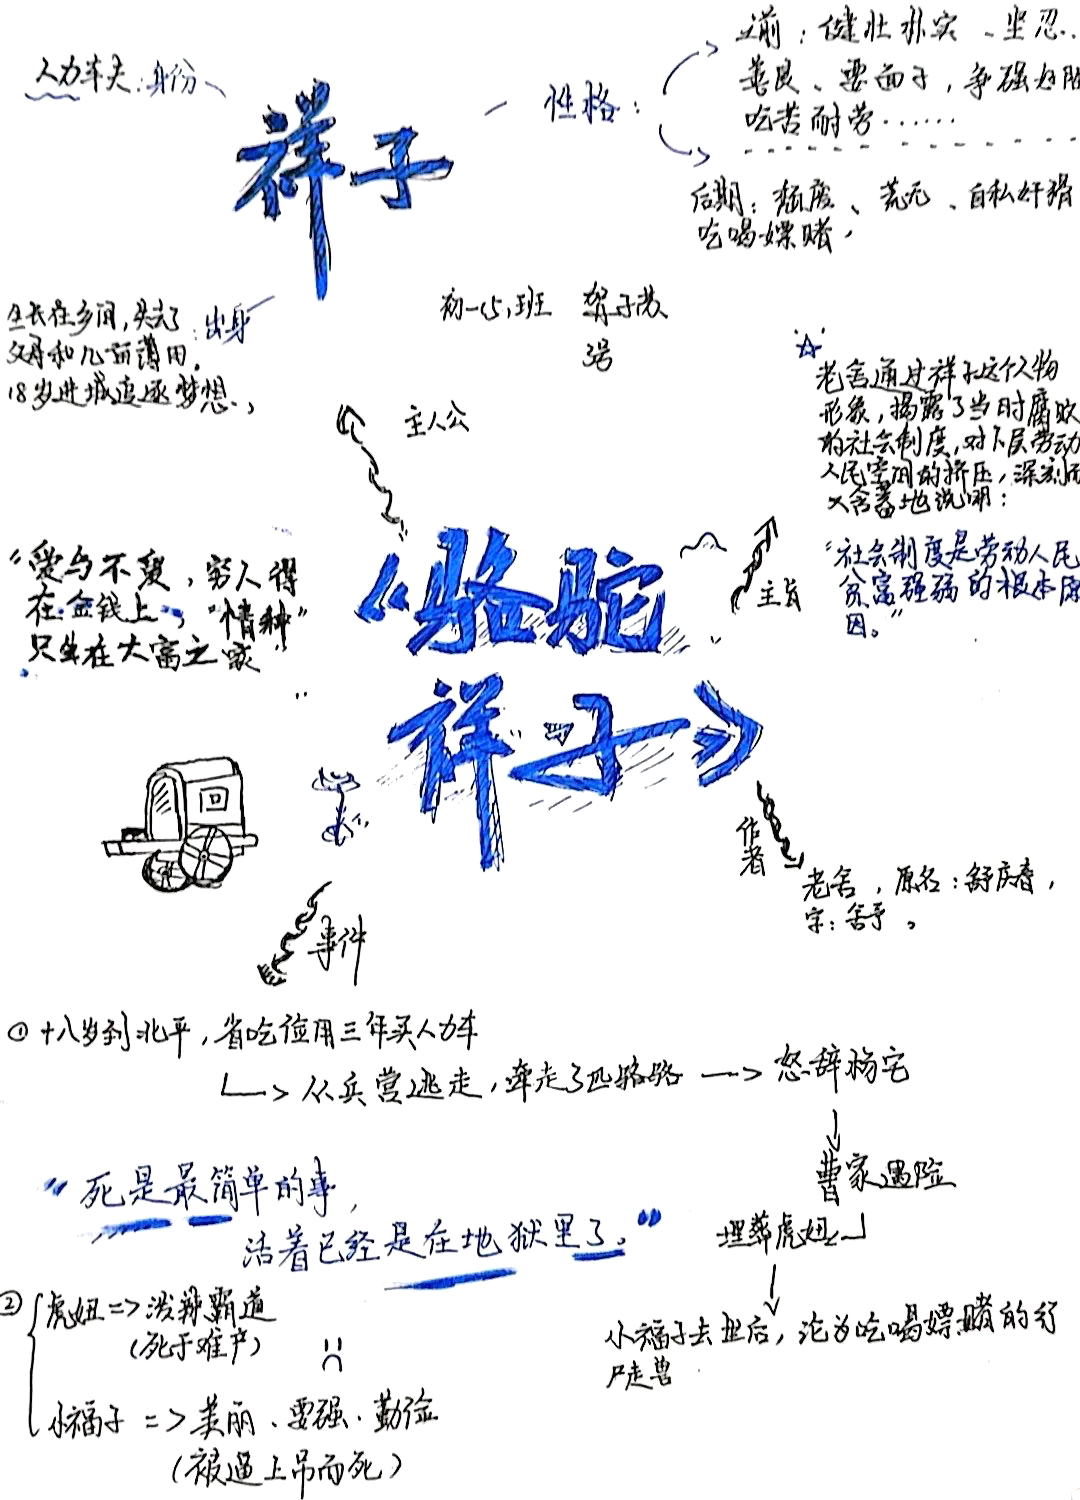 人力车夫:身份
祥子
性格:
之前:健壮朴实、坚忍..
善良、要面子,争强好胜
吃苦耐劳……
后期:颓废、荒无、自私奸猾
吃喝嫖赌,
初一(5)班
3号
生长在乡间,失去了:出身
父母和几亩薄田,
18岁进城追逐梦想.,
主人公
☆
老舍通过祥子这个人物
形象,揭露了当时腐败
的社会制度,对下层劳动
人民空间的挤压,深刻而
又含蓄地说明:
"社会制度是劳动人民
贫富强弱的根本原
因。"
主旨
"爱与不爱,穷人得
在金钱上,"情种"
只生在大富之家"
《骆驼
祥子》
作者
老舍,原名:舒庆春,
字:舍予。
事件
①十八岁到北平,省吃俭用三年买人力车
从兵营逃走,牵走了匹骆骆 —> 怒辞杨宅
曹家遇险
埋葬虎妞
小福子去世后,沦为吃喝嫖赌的行
尸走兽
"死是最简单的事,
活着已经是在地狱里了。"
②虎妞=>泼辣霸道
(死于难产)
小福子=>美丽、要强、勤俭
(被逼上吊而死)